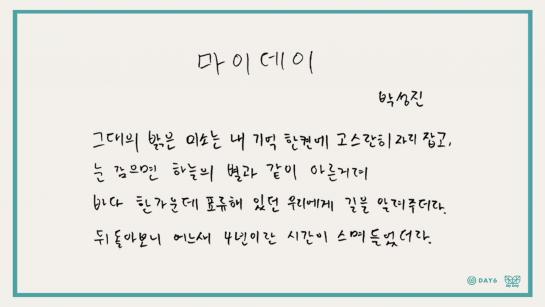 마이데이
박성진
그대의 밝은 미소는 내 기억 한켠에 고스란히 자리 잡고,
눈 감으면 하늘의 별과 같이 아른거려
바다 한가운데 표류해 있던 우리에게 길을 알려주더라.
뒤돌아보니 어느새 4년이란 시간이 스며들었더라.
DAY6